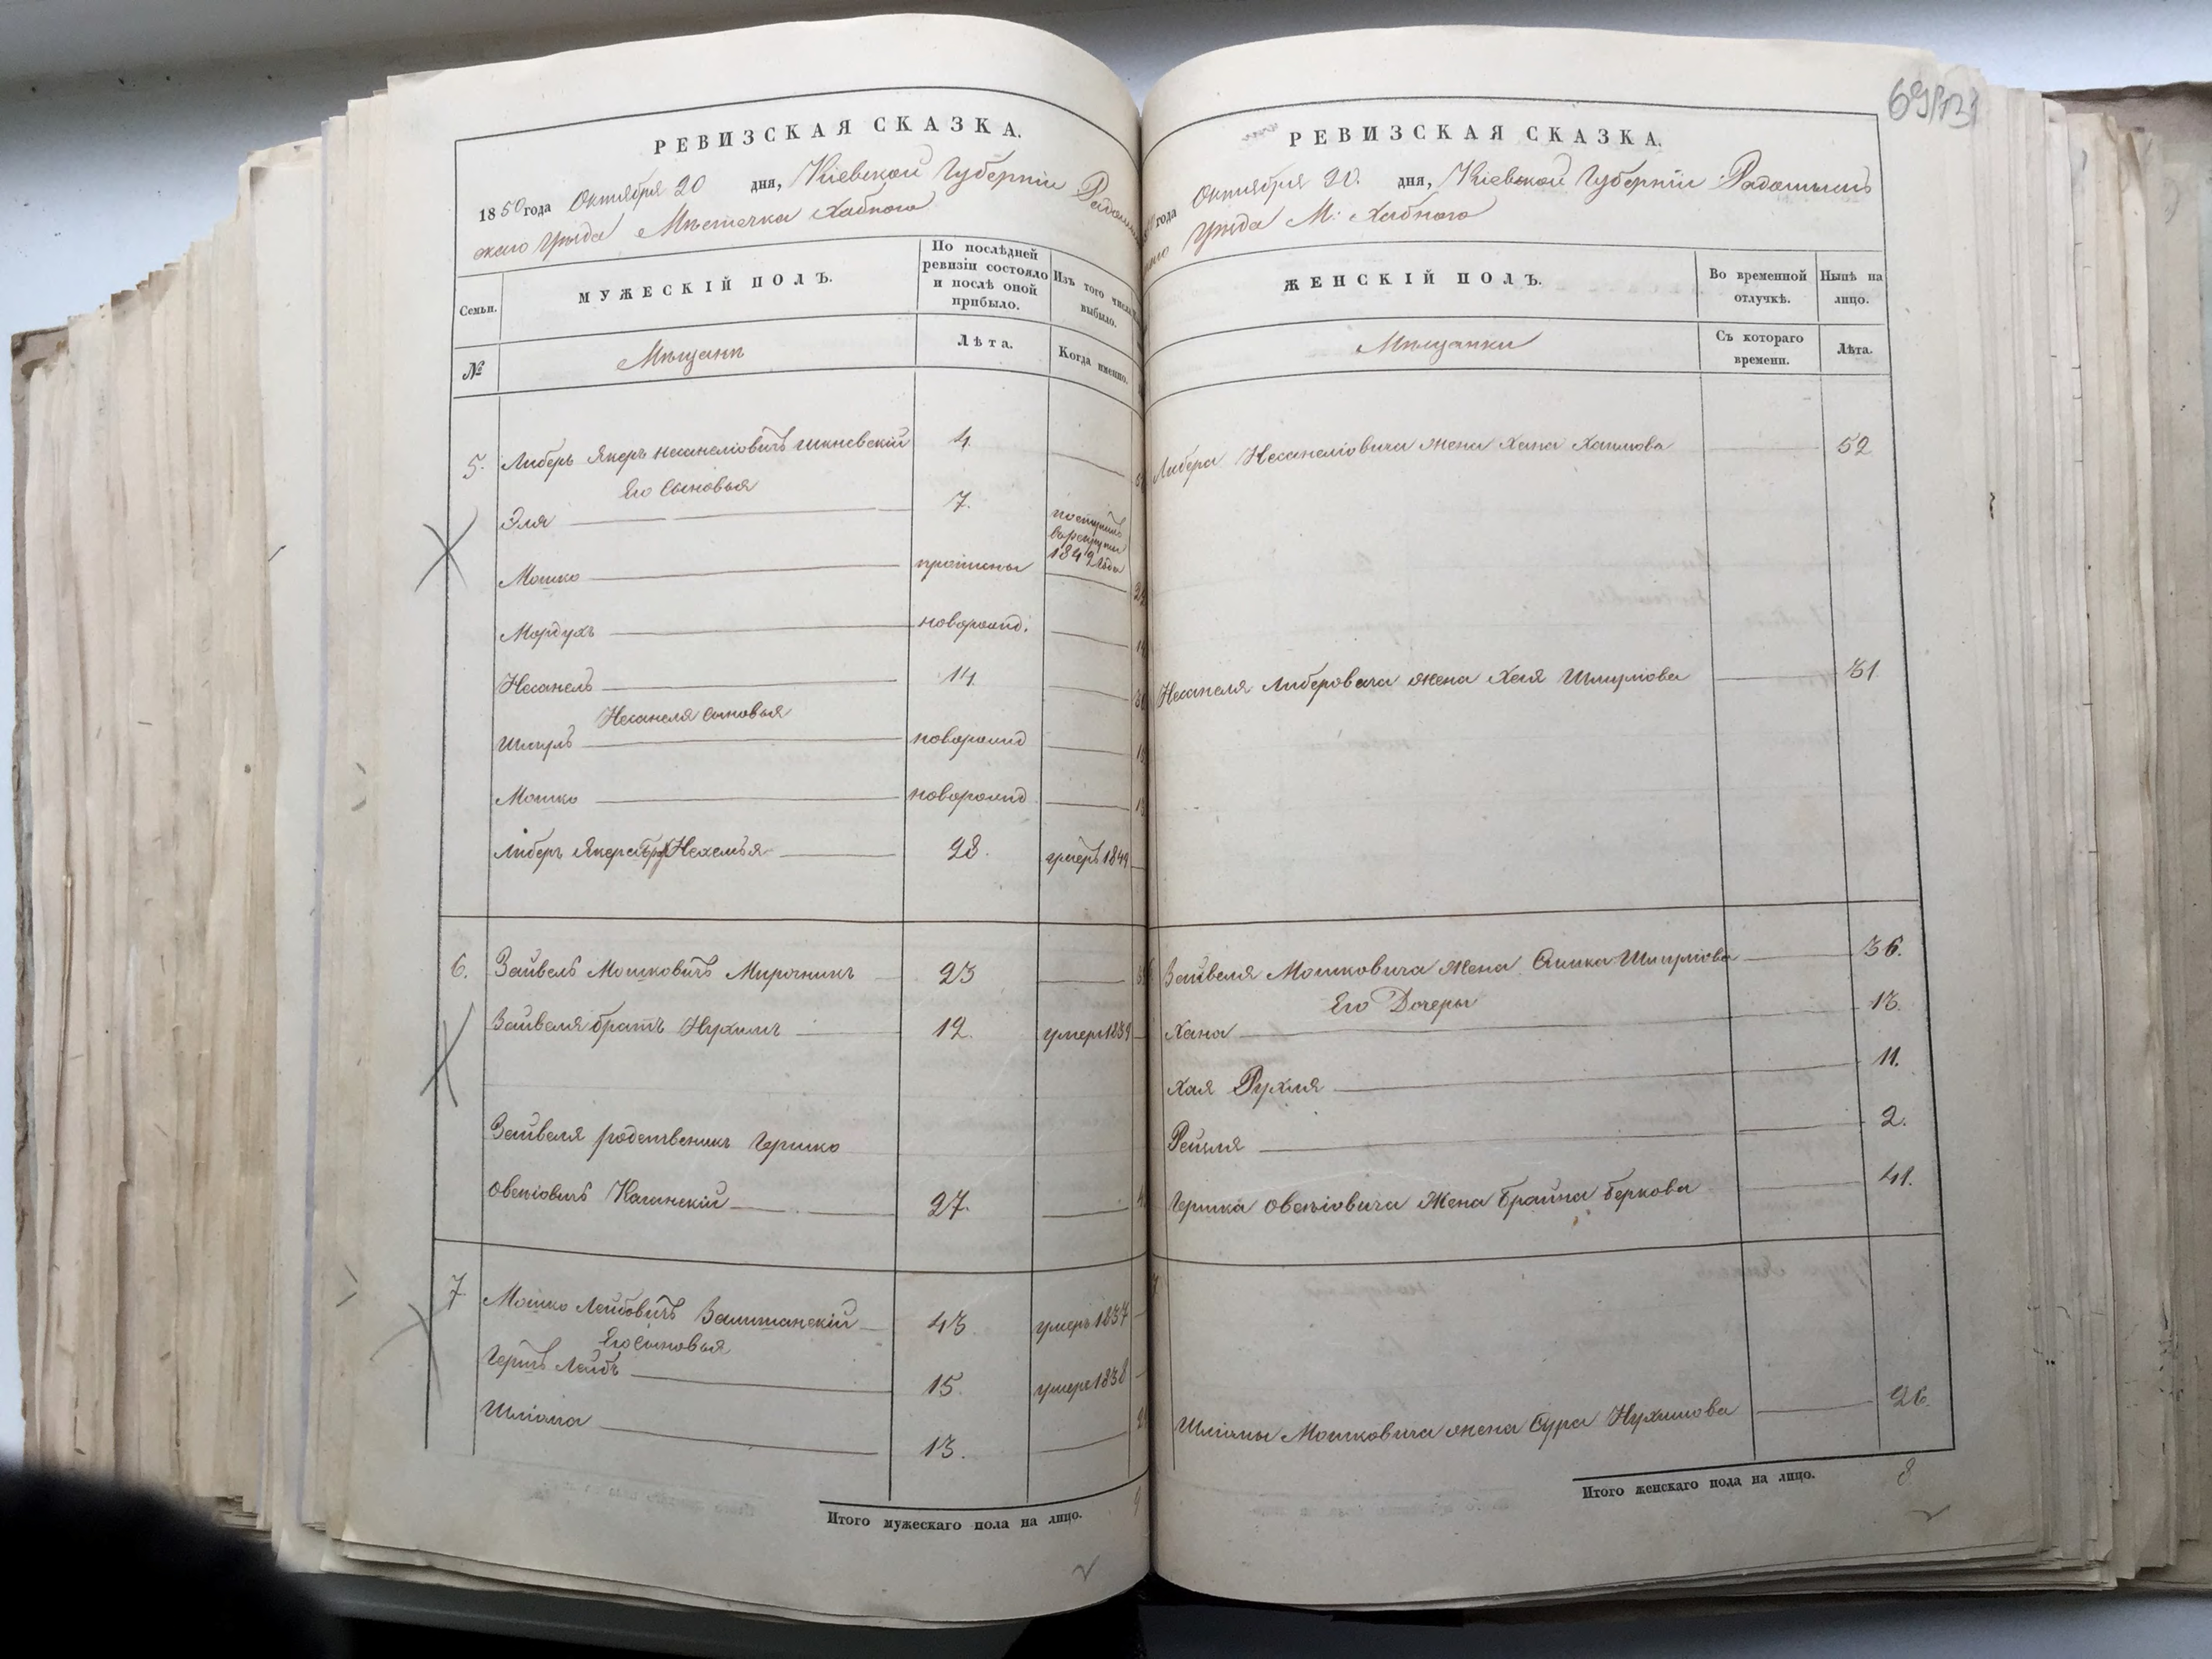 РЕВИЗСКАЯ СКАЗКА.
1850 года Октября 20 дня, Кіевской Губерніи Радомысль
скаго Уезда Мѣстечка Хабного
Семьи.
МУЖЕСКІЙ ПОЛЪ.
По послѣдней ревизіи состояло и послѣ оной прибыло.
Изъ того числа выбыло.
№
Мѣщане
Лѣта.
Когда именно.
5. Либеръ Якеръ Несанеліовичъ Шкневскій 4
Его Сыновья
Эля 7. поступилъ в рекруты 1849 Года
Мошко пропиcны
Мордухъ новорожд:
Несанель 14
Несанеля сыновья
Шмуль новорожд
Мошко новорожд
Либеръ Якера бра Нехемья 28. умеръ 1849
6. Зайвель Мошковичъ Мирочникъ 23
Зайвеля братъ Нухимъ 12. умеръ 1839
Зайвеля родственикъ Гершко
Овсѣіовичъ Каганскій 27.
7 Мошко Лейбовичъ 43 умеръ 1837
Его сыновья
Гершъ Лейбъ 15. умеръ 1838
Шліома 13.
Итого мужескаго пола на лицо. 9
РЕВИЗСКАЯ СКАЗКА.
года Октября 20. дня, Кіевской Губерніи Радомысль
Уезда М: Хабного
ЖЕНСКІЙ ПОЛЪ.
Во временной отлучкѣ.
Нынѣ на лицо.
Мѣщанки
Съ котораго времени.
Лѣта.
Либера Несанеліовича жена Хана Хаимова 52
Несанеля Либеровича жена Хая Шмуліова 31.
Зайвеля Мошковича жена Сишка Шмуліова 36.
Его Дочеры
Хана 13.
Хая Рухля 11.
Рейзля 2.
Гершка Овсѣіовича Жена Брайна Беркова 41.
Шліомы Мошковича жена Сура Нухимова 26.
Итого женскаго пола на лицо. 8